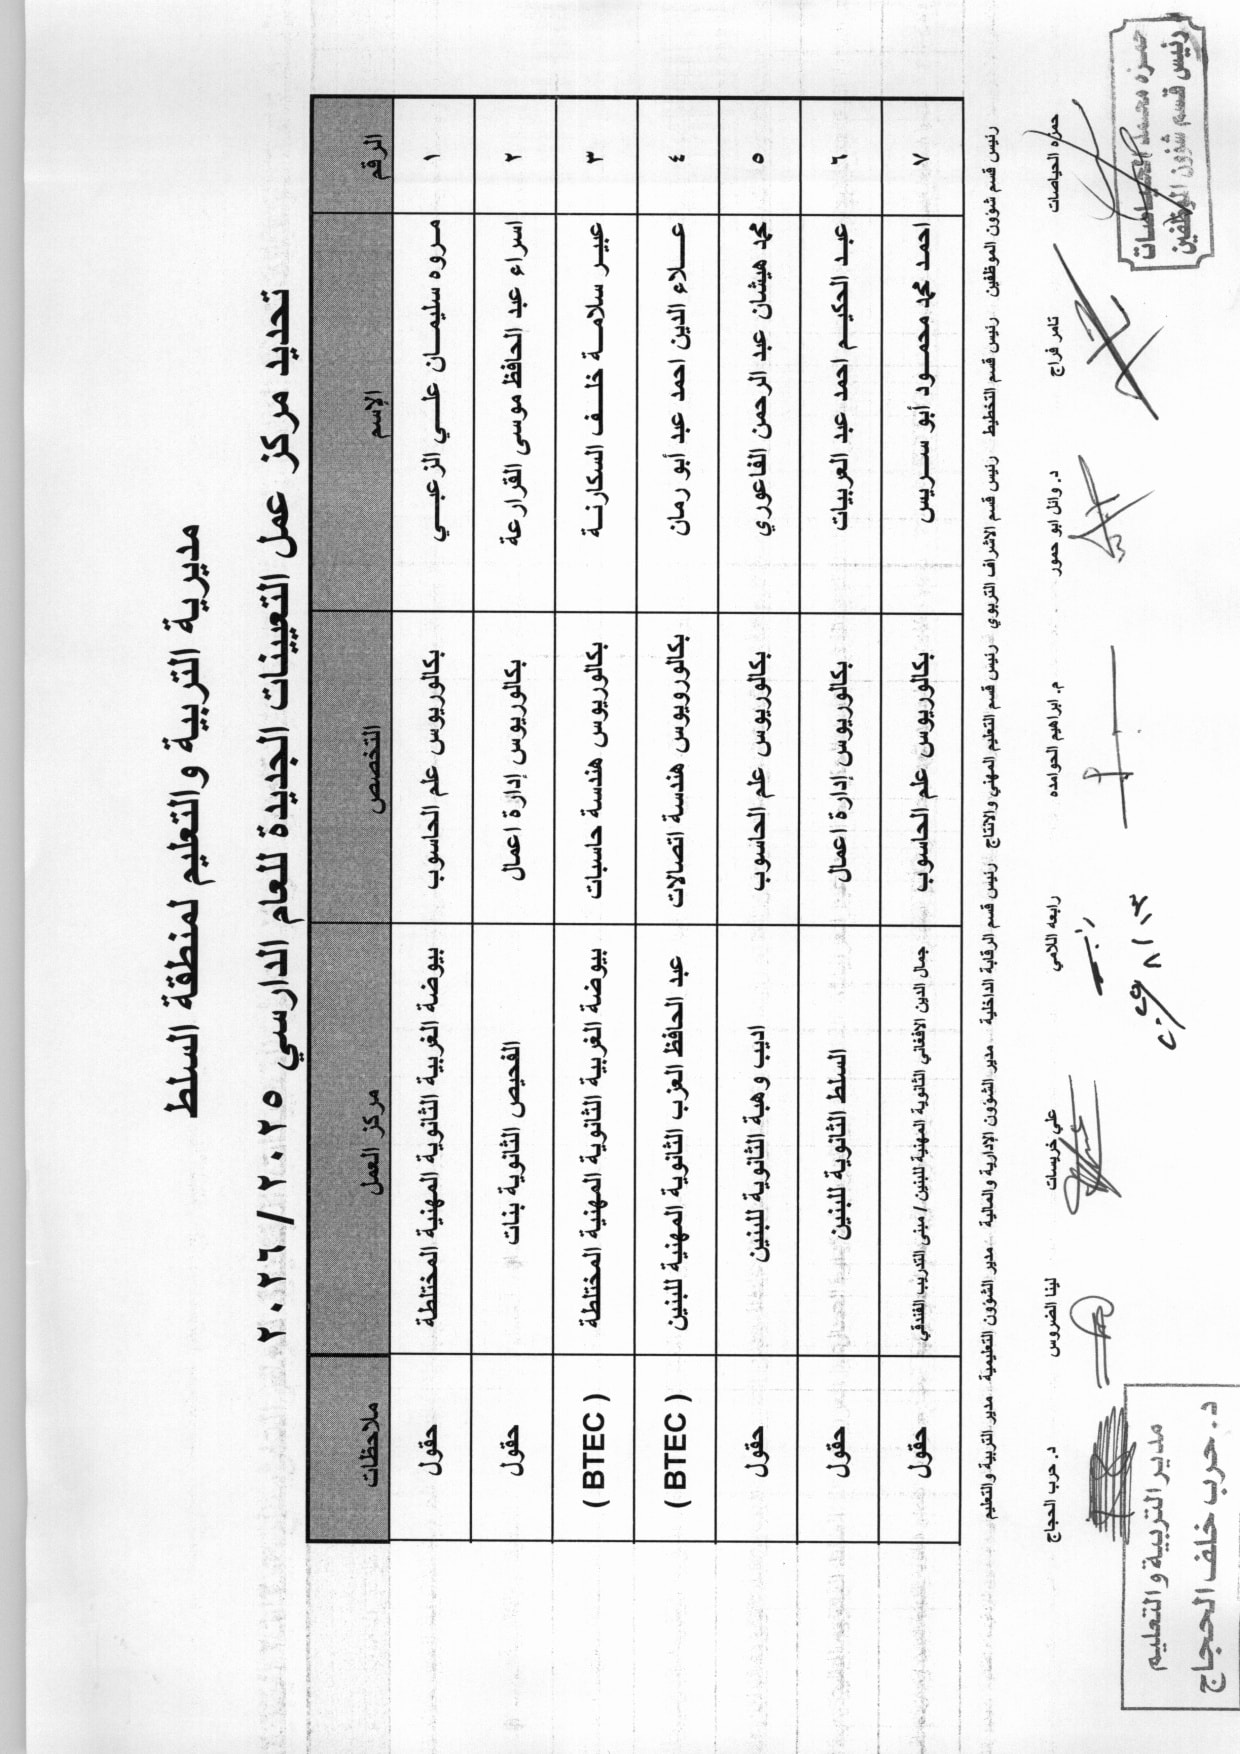 مديرية التربية والتعليم لمنطقة السلط
تحديد مركز عمل التعيينات الجديدة للعام الدارسي ٢٠٢٥ / ٢٠٢٦
الرقم الإسم التخصص مركز العمل ملاحظات
١ مروه سليمان علي الزعبي بكالوريوس علم الحاسوب بيوضة الغربية الثانوية المهنية المختلطة حقول
٢ اسراء عبد الحافظ موسى القرارعة بكالوريوس إدارة اعمال الفحيص الثانوية بنات حقول
٣ عبير سلامة خلف السكارنة بكالوريوس هندسة حاسبات بيوضة الغربية الثانوية المهنية المختلطة ( BTEC )
٤ علاء الدين احمد عبد أبو رمان بكالورويوس هندسة اتصالات عبد الحافظ العزب الثانوية المهنية للبنين ( BTEC )
٥ محمد هيشان عبد الرحمن الفاعوري بكالوريوس علم الحاسوب اديب وهبة الثانوية للبنين حقول
٦ عبد الحكيم احمد عبد العربيات بكالوريوس إدارة اعمال السلط الثانوية للبنين حقول
٧ احمد محمد محمود أبو سريس بكالوريوس علم الحاسوب جمال الدين الافغاني الثانوية المهنية للبنين / مبنى التدريب الفندقي حقول
رئيس قسم شؤون الموظفين رئيس قسم التخطيط رئيس قسم الاشراف التربوي رئيس قسم التعليم المهني والانتاج رئيس قسم الرقابة الداخلية مدير الشؤون الإدارية والمالية مدير الشؤون التعليمية مدير التربية والتعليم
حمزه الحياصات ثامر فراج د. وائل ابو حمور م. ابراهيم الحوامده رابعه اللامي علي خريسات لينا الضروس د. حرب الحجاج
حمزه محمد الحياصات
رئيس قسم شؤون الموظفين
مدير التربية و التعليم
د. حرب خلف الحجاج